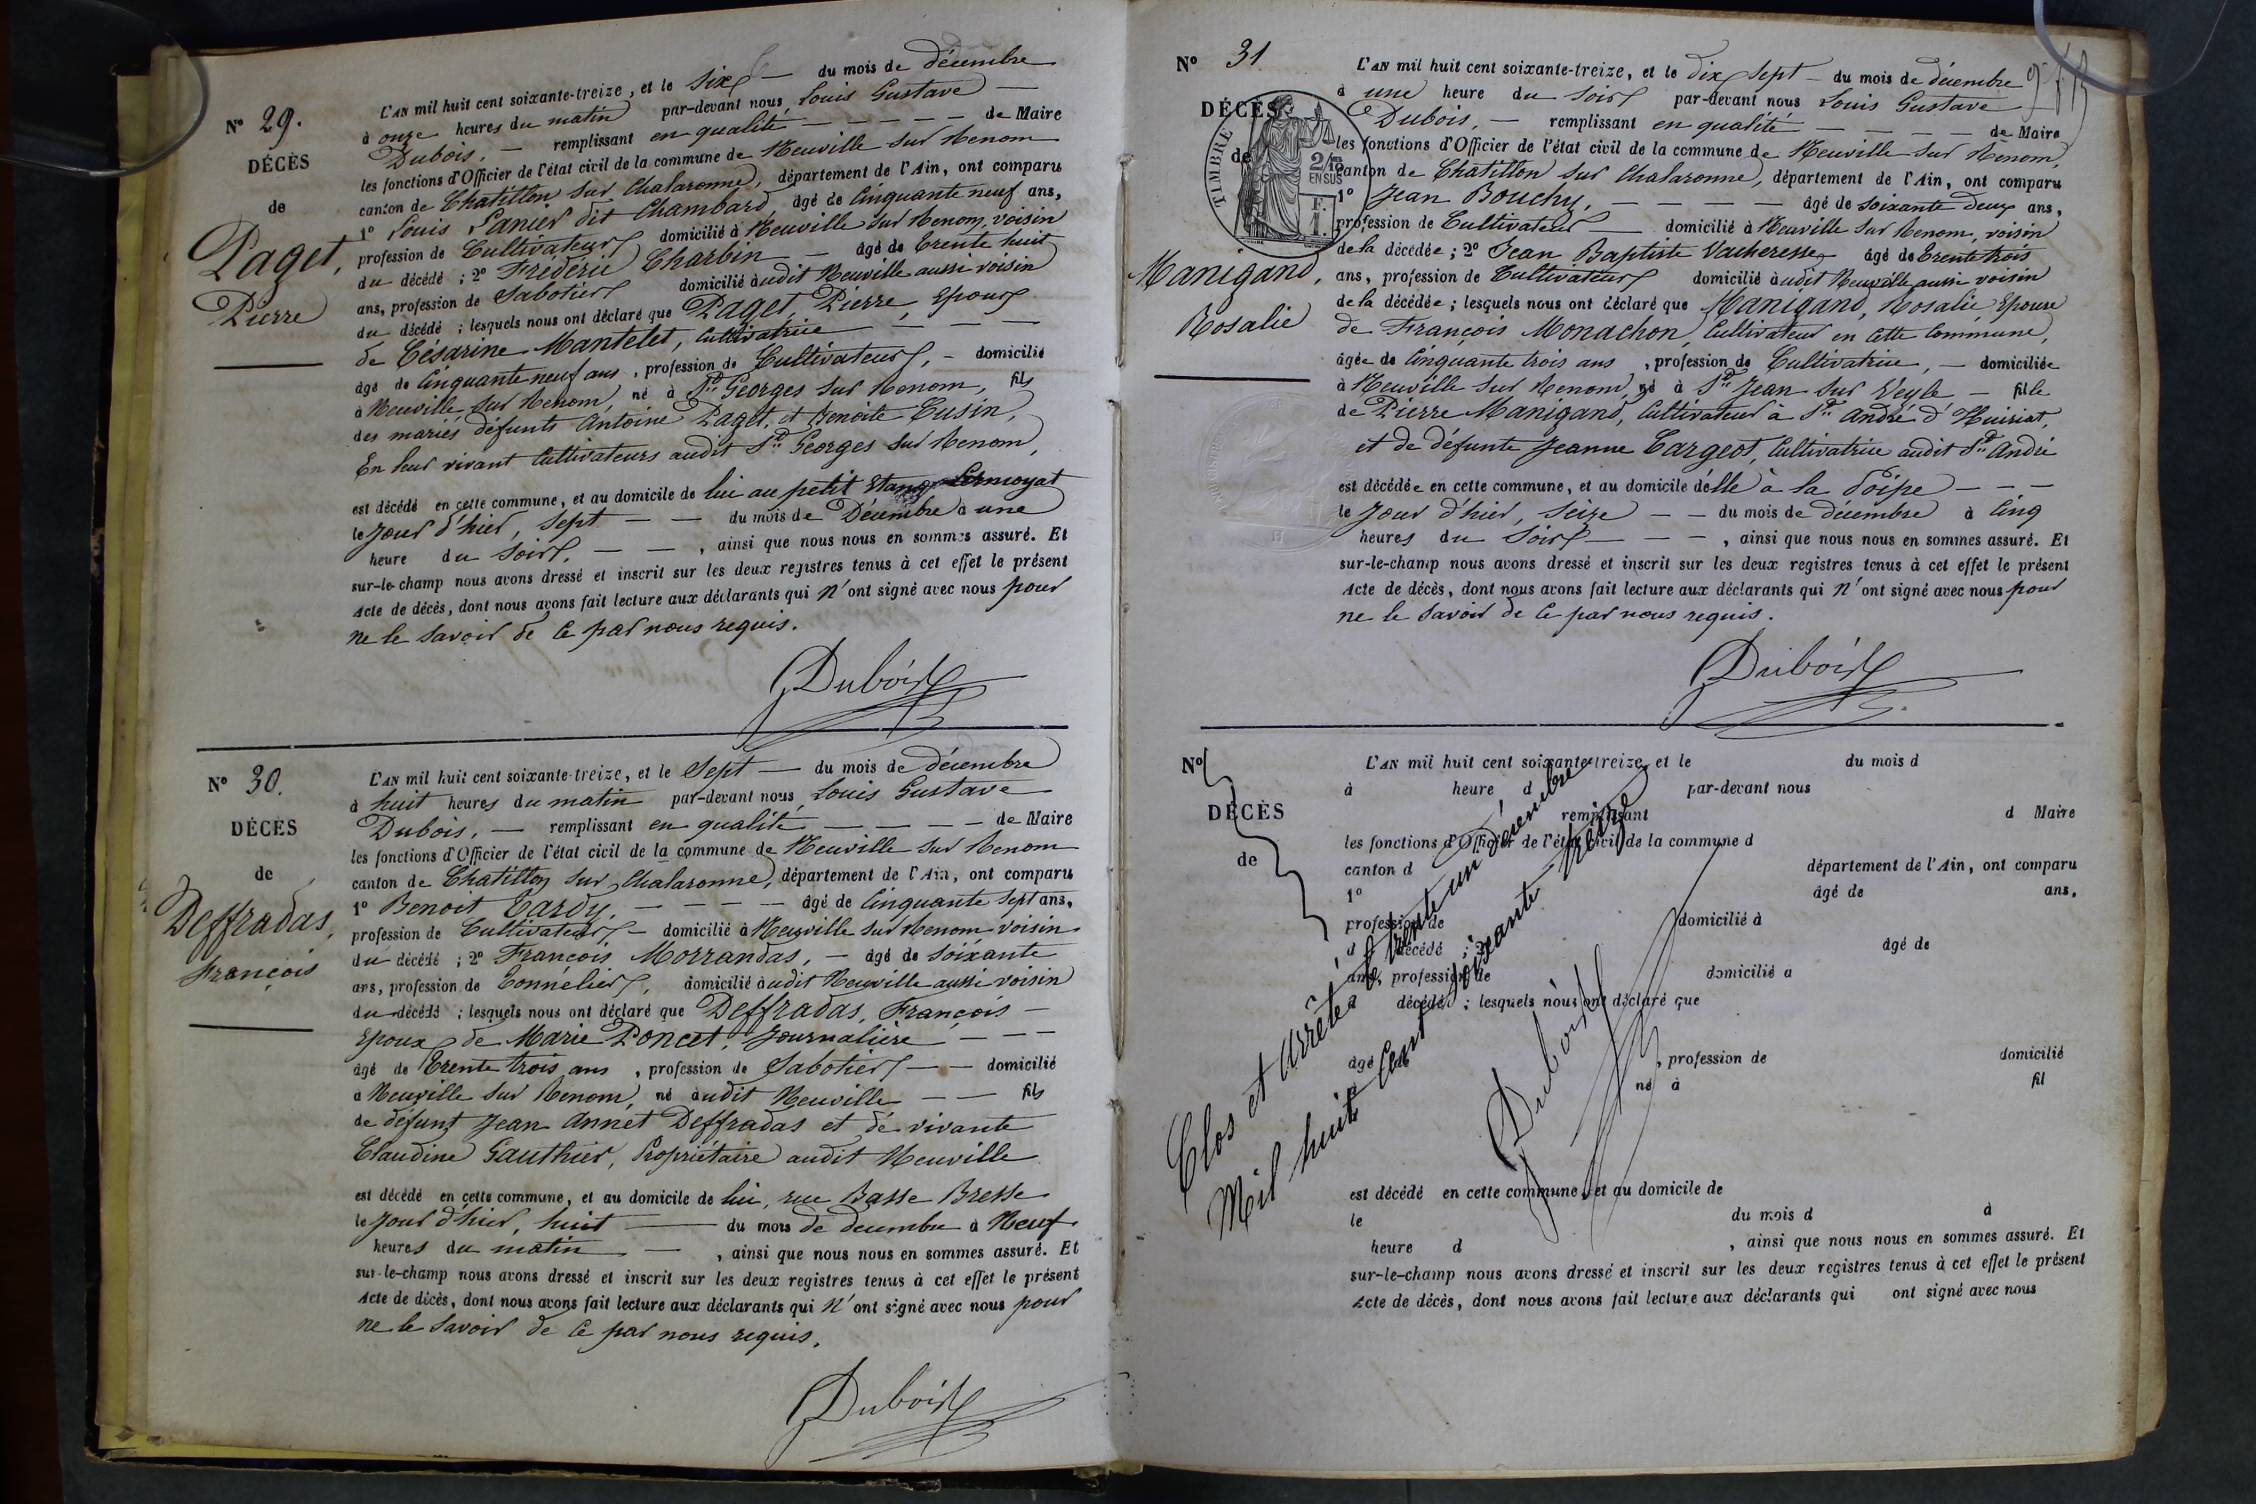 N° 29.
DÉCÈS
de
Paget,
Pierre
L'AN mil huit cent soixante-treize, et le six — du mois de décembre
à onze heures du matin par-devant nous Louis Gustave —
Dubois, — remplissant en qualité — — — — de Maire
les fonctions d'Officier de l'état civil de la commune de Neuville sur Renom
canton de Chatillon sur Chalaronne, département de l'Ain, ont comparu
1° Louis Lanier dit Chambard, âgé de Cinquante neuf ans,
profession de Cultivateur domicilié à Neuville sur Renom, voisin
du décédé ; 2° Frédéric Charbin — âgé de trente huit
ans, profession de Sabotier domicilié audit Neuville aussi voisin
du décédé ; lesquels nous ont déclaré que Paget, Pierre, Epoux
de Césarine Mantelet, Cultivatrice — — —
âgé de Cinquante neuf ans, profession de Cultivateur, — domicilié
à Neuville sur Renom, né à St. Georges sur Renom, fils
des mariés défunts Antoine Paget, et Benoite Cusin,
En leur vivant Cultivateurs audit St. Georges sur Renom,
est décédé en cette commune, et au domicile de lui au petit Etang
le Jour d'hier, sept — — du mois de Décembre à une
heure du Soir, — — , ainsi que nous nous en sommes assuré. Et
sur-le-champ nous avons dressé et inscrit sur les deux registres tenus à cet effet le présent
Acte de décès, dont nous avons fait lecture aux déclarants qui n'ont signé avec nous pour
ne le savoir de ce par nous requis.
Dubois
N° 30.
DÉCÈS
de
Deffradas,
François
L'AN mil huit cent soixante-treize, et le Sept — du mois de décembre
à huit heures du matin par-devant nous Louis Gustave
Dubois, — remplissant en qualité — — — — de Maire
les fonctions d'Officier de l'état civil de la commune de Neuville sur Renom
canton de Chatillon sur Chalaronne, département de l'Ain, ont comparu
1° Benoit Tardy, — — — — âgé de Cinquante sept ans,
profession de Cultivateur — domicilié à Neuville sur Renom voisin
du décédé ; 2° François Morrandas, — âgé de soixante
ans, profession de Tonnélier, domicilié audit Neuville aussi voisin
du décédé ; lesquels nous ont déclaré que Deffradas, François —
Epoux de Marie Poncet, Journalière — — —
âgé de Trente trois ans, profession de Sabotier — — domicilié
à Neuville sur Renom, né audit Neuville — — fils
de défunt Jean Annet Deffradas et de vivante
Claudine Gauthier, Propriétaire audit Neuville
est décédé en cette commune, et au domicile de lui, rue Basse Bresse
le Jour d'hier, huit — du mois de décembre à Neuf
heures du matin — , ainsi que nous nous en sommes assuré. Et
sur-le-champ nous avons dressé et inscrit sur les deux registres tenus à cet effet le présent
Acte de décès, dont nous avons fait lecture aux déclarants qui n'ont signé avec nous pour
ne le savoir de ce par nous requis.
Dubois
N° 31
DÉCÈS
de
TIMBRE
2/10 EN SUS
F. 1.
Manigand,
Rosalie
L'AN mil huit cent soixante-treize, et le dix sept — du mois de décembre
à une heure du soir par-devant nous Louis Gustave
Dubois, — remplissant en qualité — — — — de Maire
les fonctions d'Officier de l'état civil de la commune de Neuville sur Renom,
canton de Chatillon sur Chalaronne, département de l'Ain, ont comparu
1° Jean Bouchy, — — — — âgé de soixante deux ans,
profession de Cultivateur — domicilié à Neuville sur Renom, voisin
de la décédée ; 2° Jean Baptiste Vacheresse, âgé de trente trois
ans, profession de Cultivateur domicilié audit Neuville aussi voisin
de la décédée ; lesquels nous ont déclaré que Manigand, Rosalie, Epouse
de François Monachon, Cultivateur en cette Commune,
âgée de Cinquante trois ans, profession de Cultivatrice, — domiciliée
à Neuville sur Renom, né à St. Jean sur Veyle — fille
de Pierre Manigand, Cultivateur à St. André d'Huiriat,
et de défunte Jeanne Targeot, Cultivatrice audit St. André
est décédée en cette commune, et au domicile d'elle à la Poipe — — —
le Jour d'hier, seize — — du mois de décembre à Cinq
heures du Soir — — — , ainsi que nous nous en sommes assuré. Et
sur-le-champ nous avons dressé et inscrit sur les deux registres tenus à cet effet le présent
Acte de décès, dont nous avons fait lecture aux déclarants qui n'ont signé avec nous pour
ne le savoir de ce par nous requis.
Dubois
N°
DÉCÈS
de
L'AN mil huit cent soixante-treize, et le du mois d
à heure d par-devant nous
remplissant d Maire
les fonctions d'Officier de l'état civil de la commune d
canton d département de l'Ain, ont comparu
1° âgé de ans,
profession de domicilié à
d décédé ; 2° âgé de
ans, profession de domicilié à
d décédé ; lesquels nous ont déclaré que
âgé de , profession de domicilié
à né à fil
est décédé en cette commune, et au domicile de
le du mois d à
heure d , ainsi que nous nous en sommes assuré. Et
sur-le-champ nous avons dressé et inscrit sur les deux registres tenus à cet effet le présent
Acte de décès, dont nous avons fait lecture aux déclarants qui ont signé avec nous
Clos et Arrêté le trente un décembre
Mil huit Cent soixante treize
Dubois